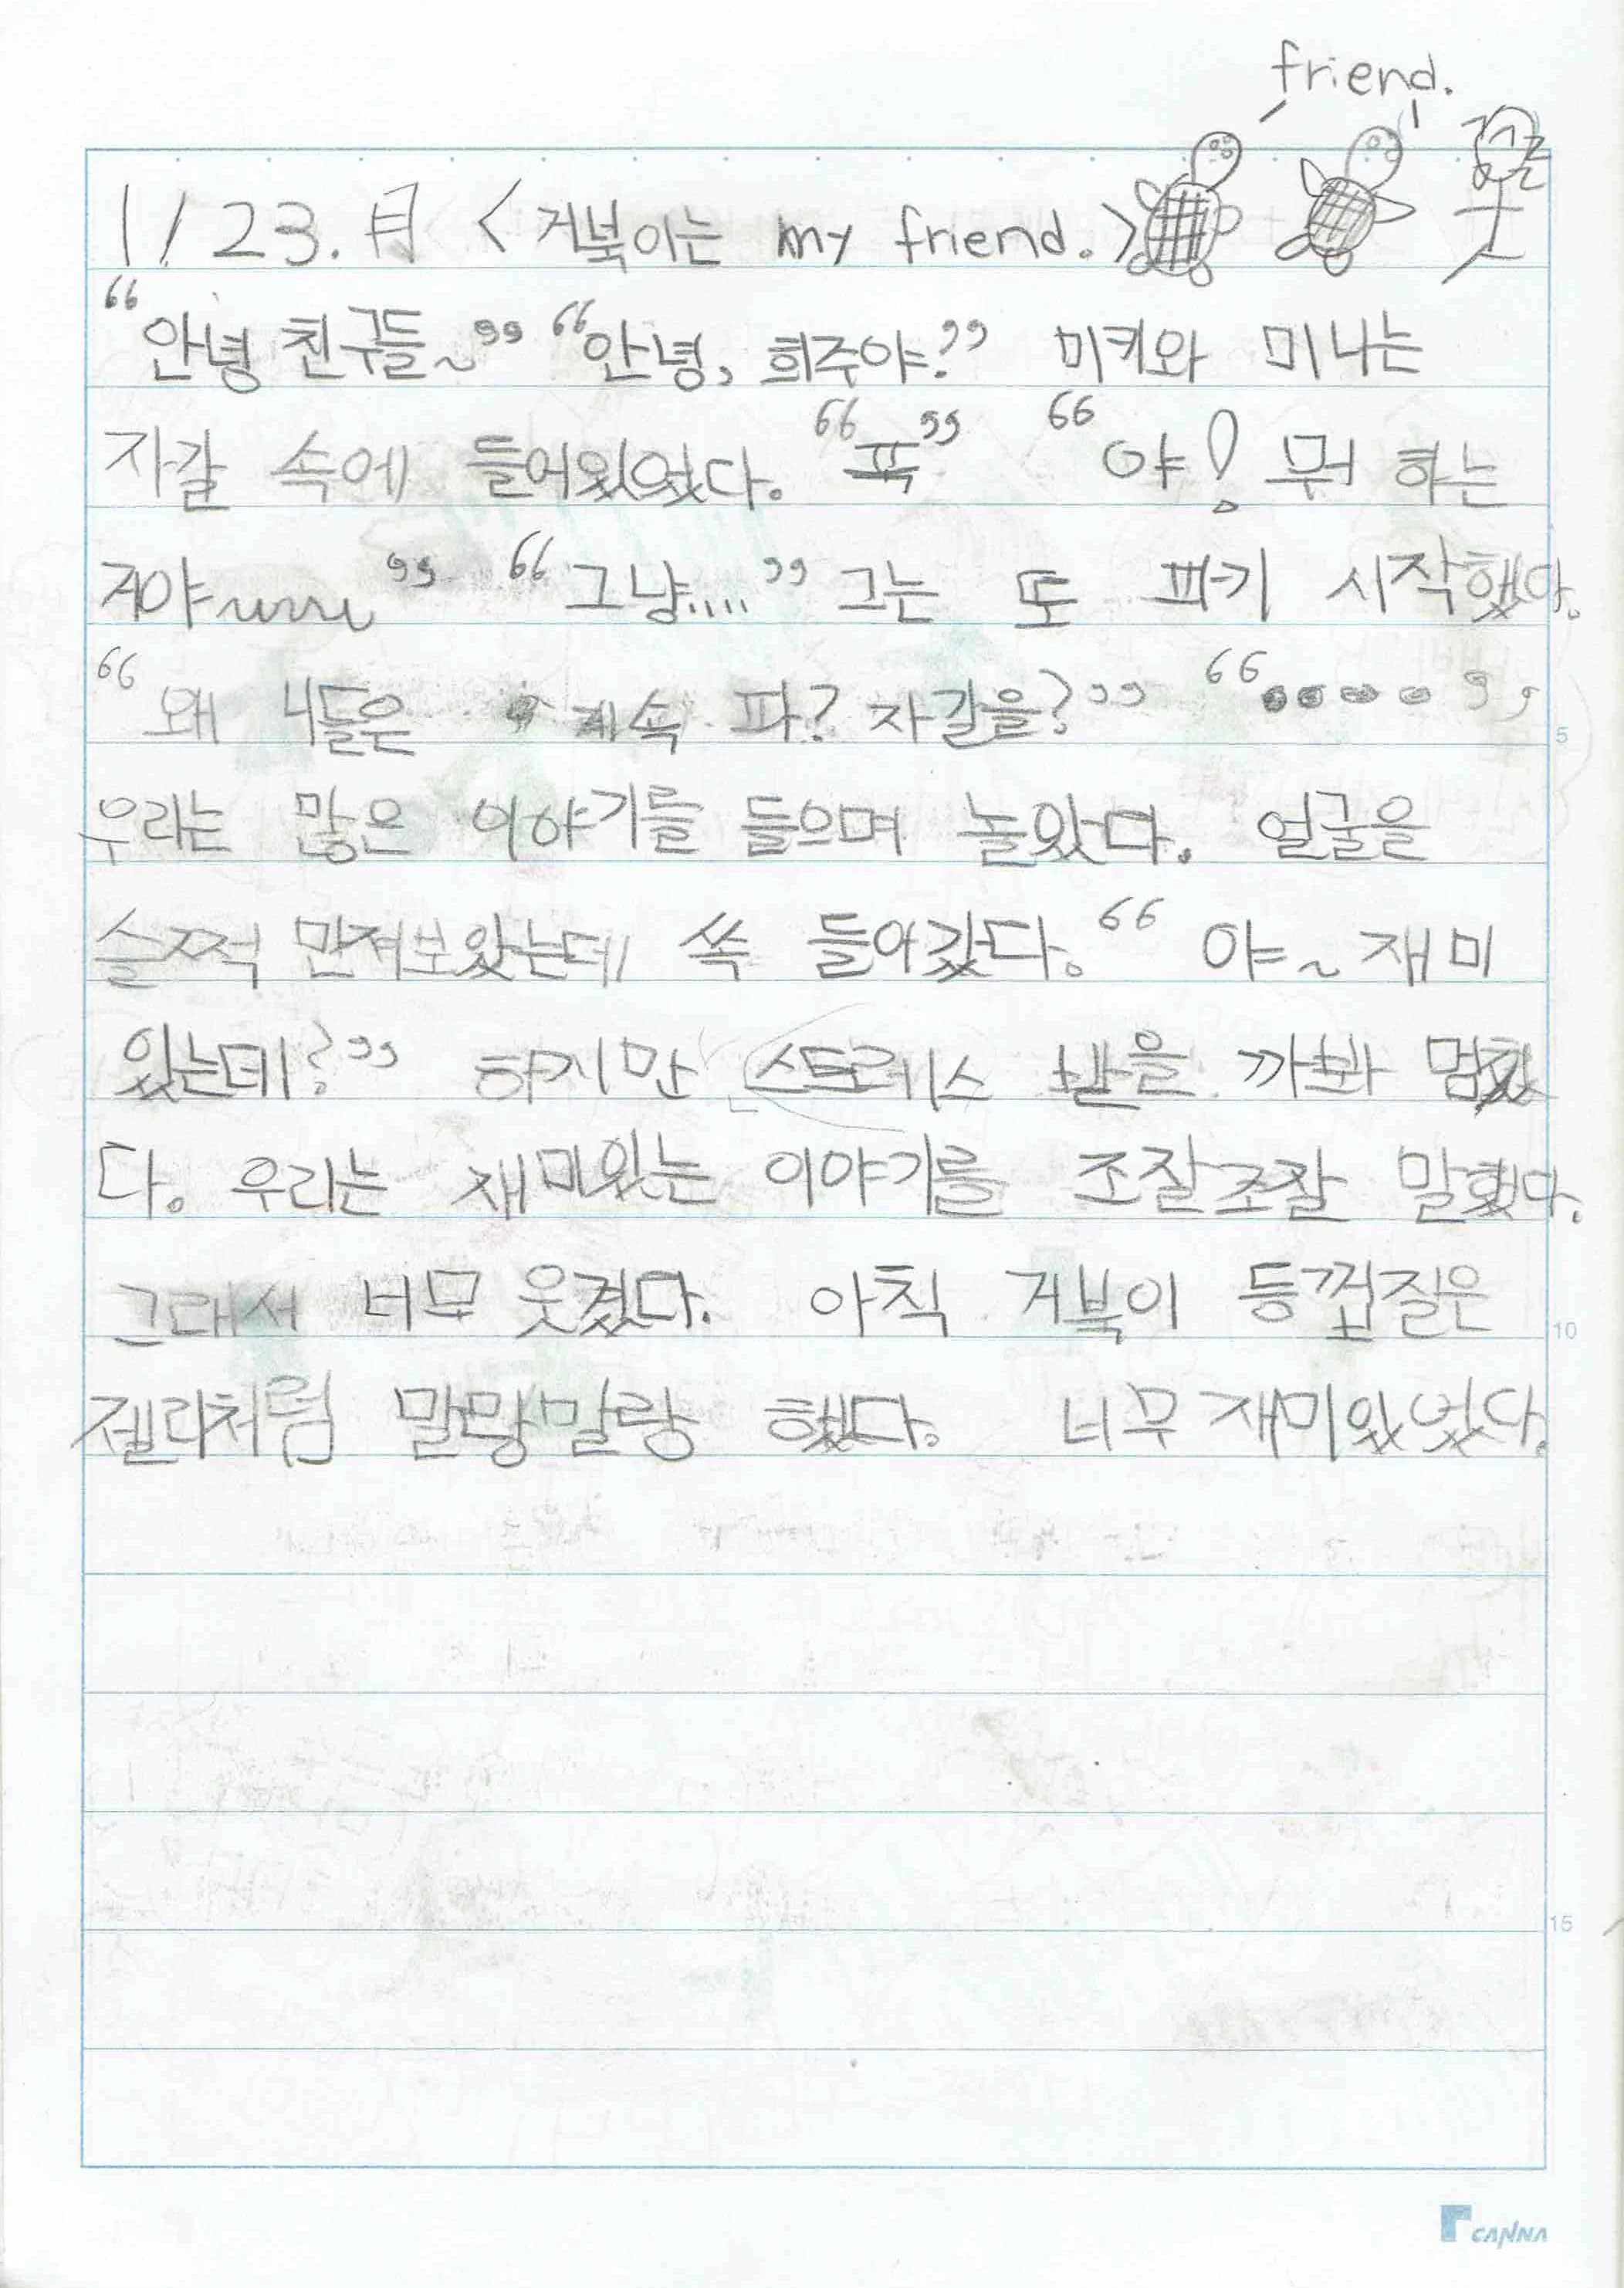 friend.
1/23. 月 <거북이는 my friend.>
“안녕 친구들~” “안녕, 희주야?” 미키와 미나는
자갈 속에 들어있었다. “푹” “야! 뭐 하는
거야~~~~” “그냥....” 그는 또 파기 시작했다.
“왜 너들은 계속 파? 자갈을?” “••••”
우리는 많은 이야기를 들으며 놀았다. 얼굴을
슬쩍 만져보았는데 쏙 들어갔다. “야~ 재미
있는데?” 하지만 스트레스 받을 까봐 멈췄
다. 우리는 재미있는 이야기를 조잘조잘 말했다.
그래서 너무 웃겼다. 아칙 거북이 등껍질은
젤리처럼 말랑말랑 했다. 너무 재미있었다.
5
10
15
CANNA